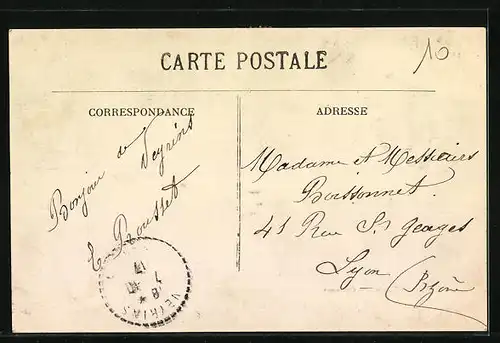 CARTE POSTALE
10
CORRESPONDANCE
ADRESSE
Bonjour de Veyrins
E Rousset
Madame et Messieurs
Boissonnet.
41 Rue St Georges
Lyon (Rhône